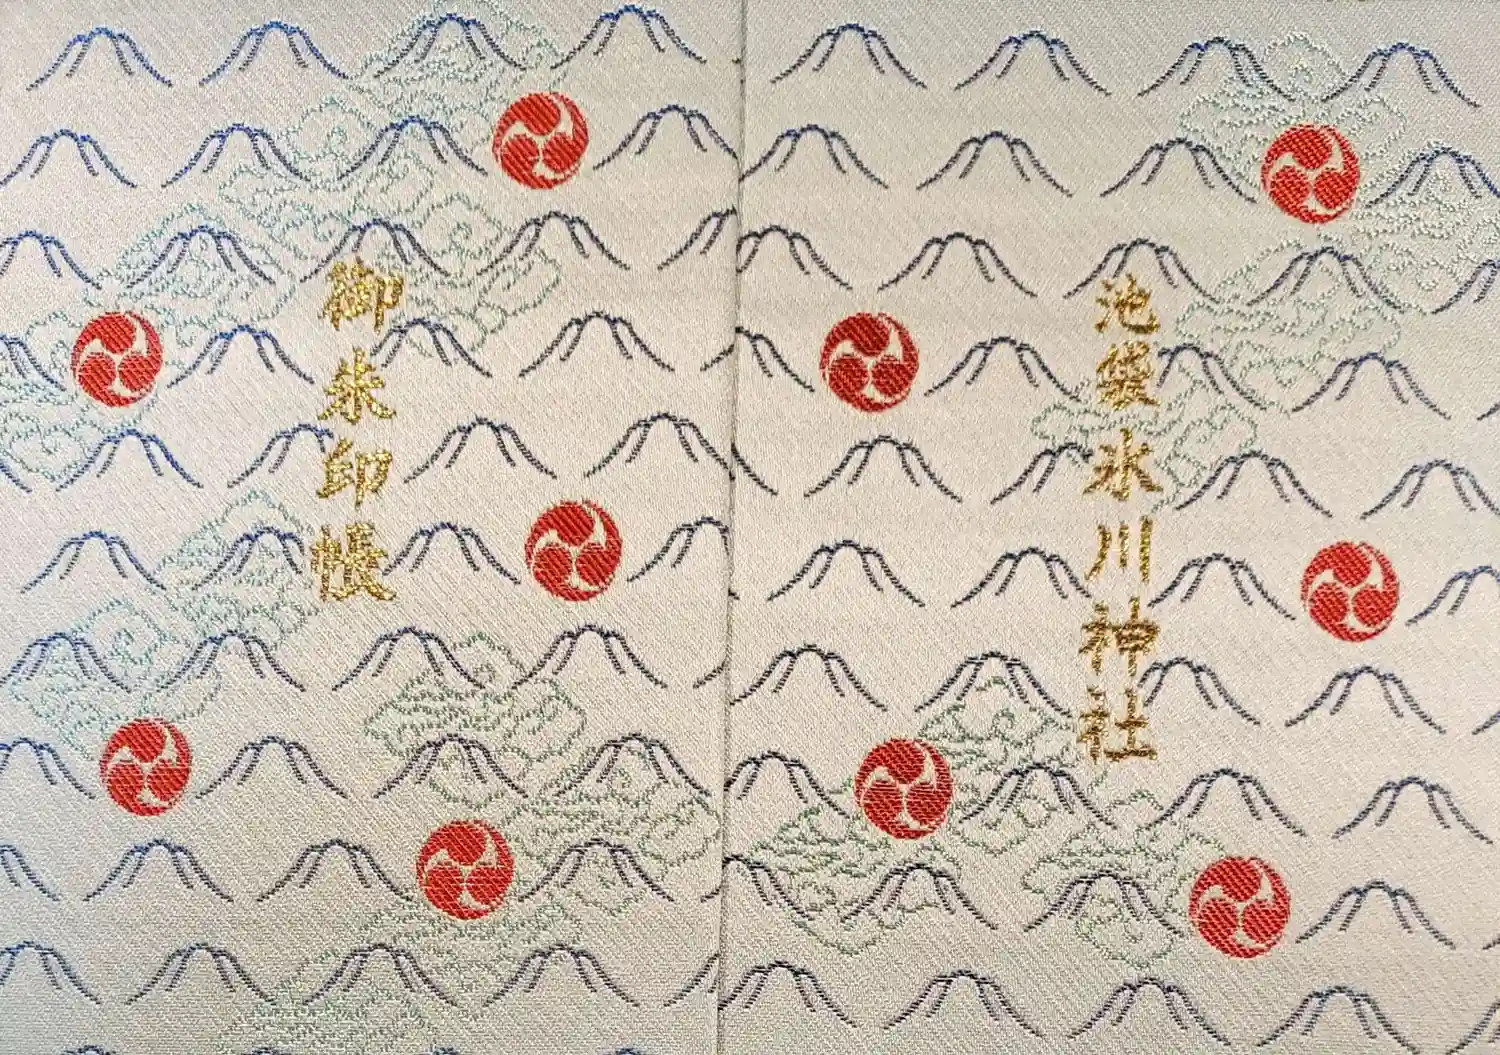 池袋氷川神社
御朱印帳